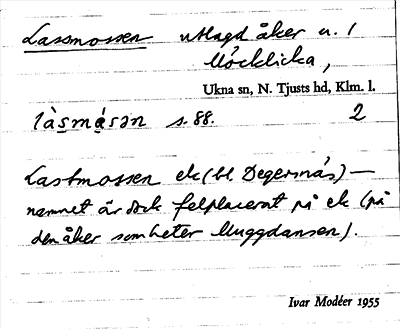 Lassmossen utlagd åker u. 1
Möcklicka,
Ukna sn, N. Tjusts hd, Klm. l.
làsmási̥n s. 88. 2
Lastmossen ek (bl. Degersnäs) —
namnet är dock felplacerat på ek (på
den åker som heter Muggdansen).
Ivar Modéer 1955